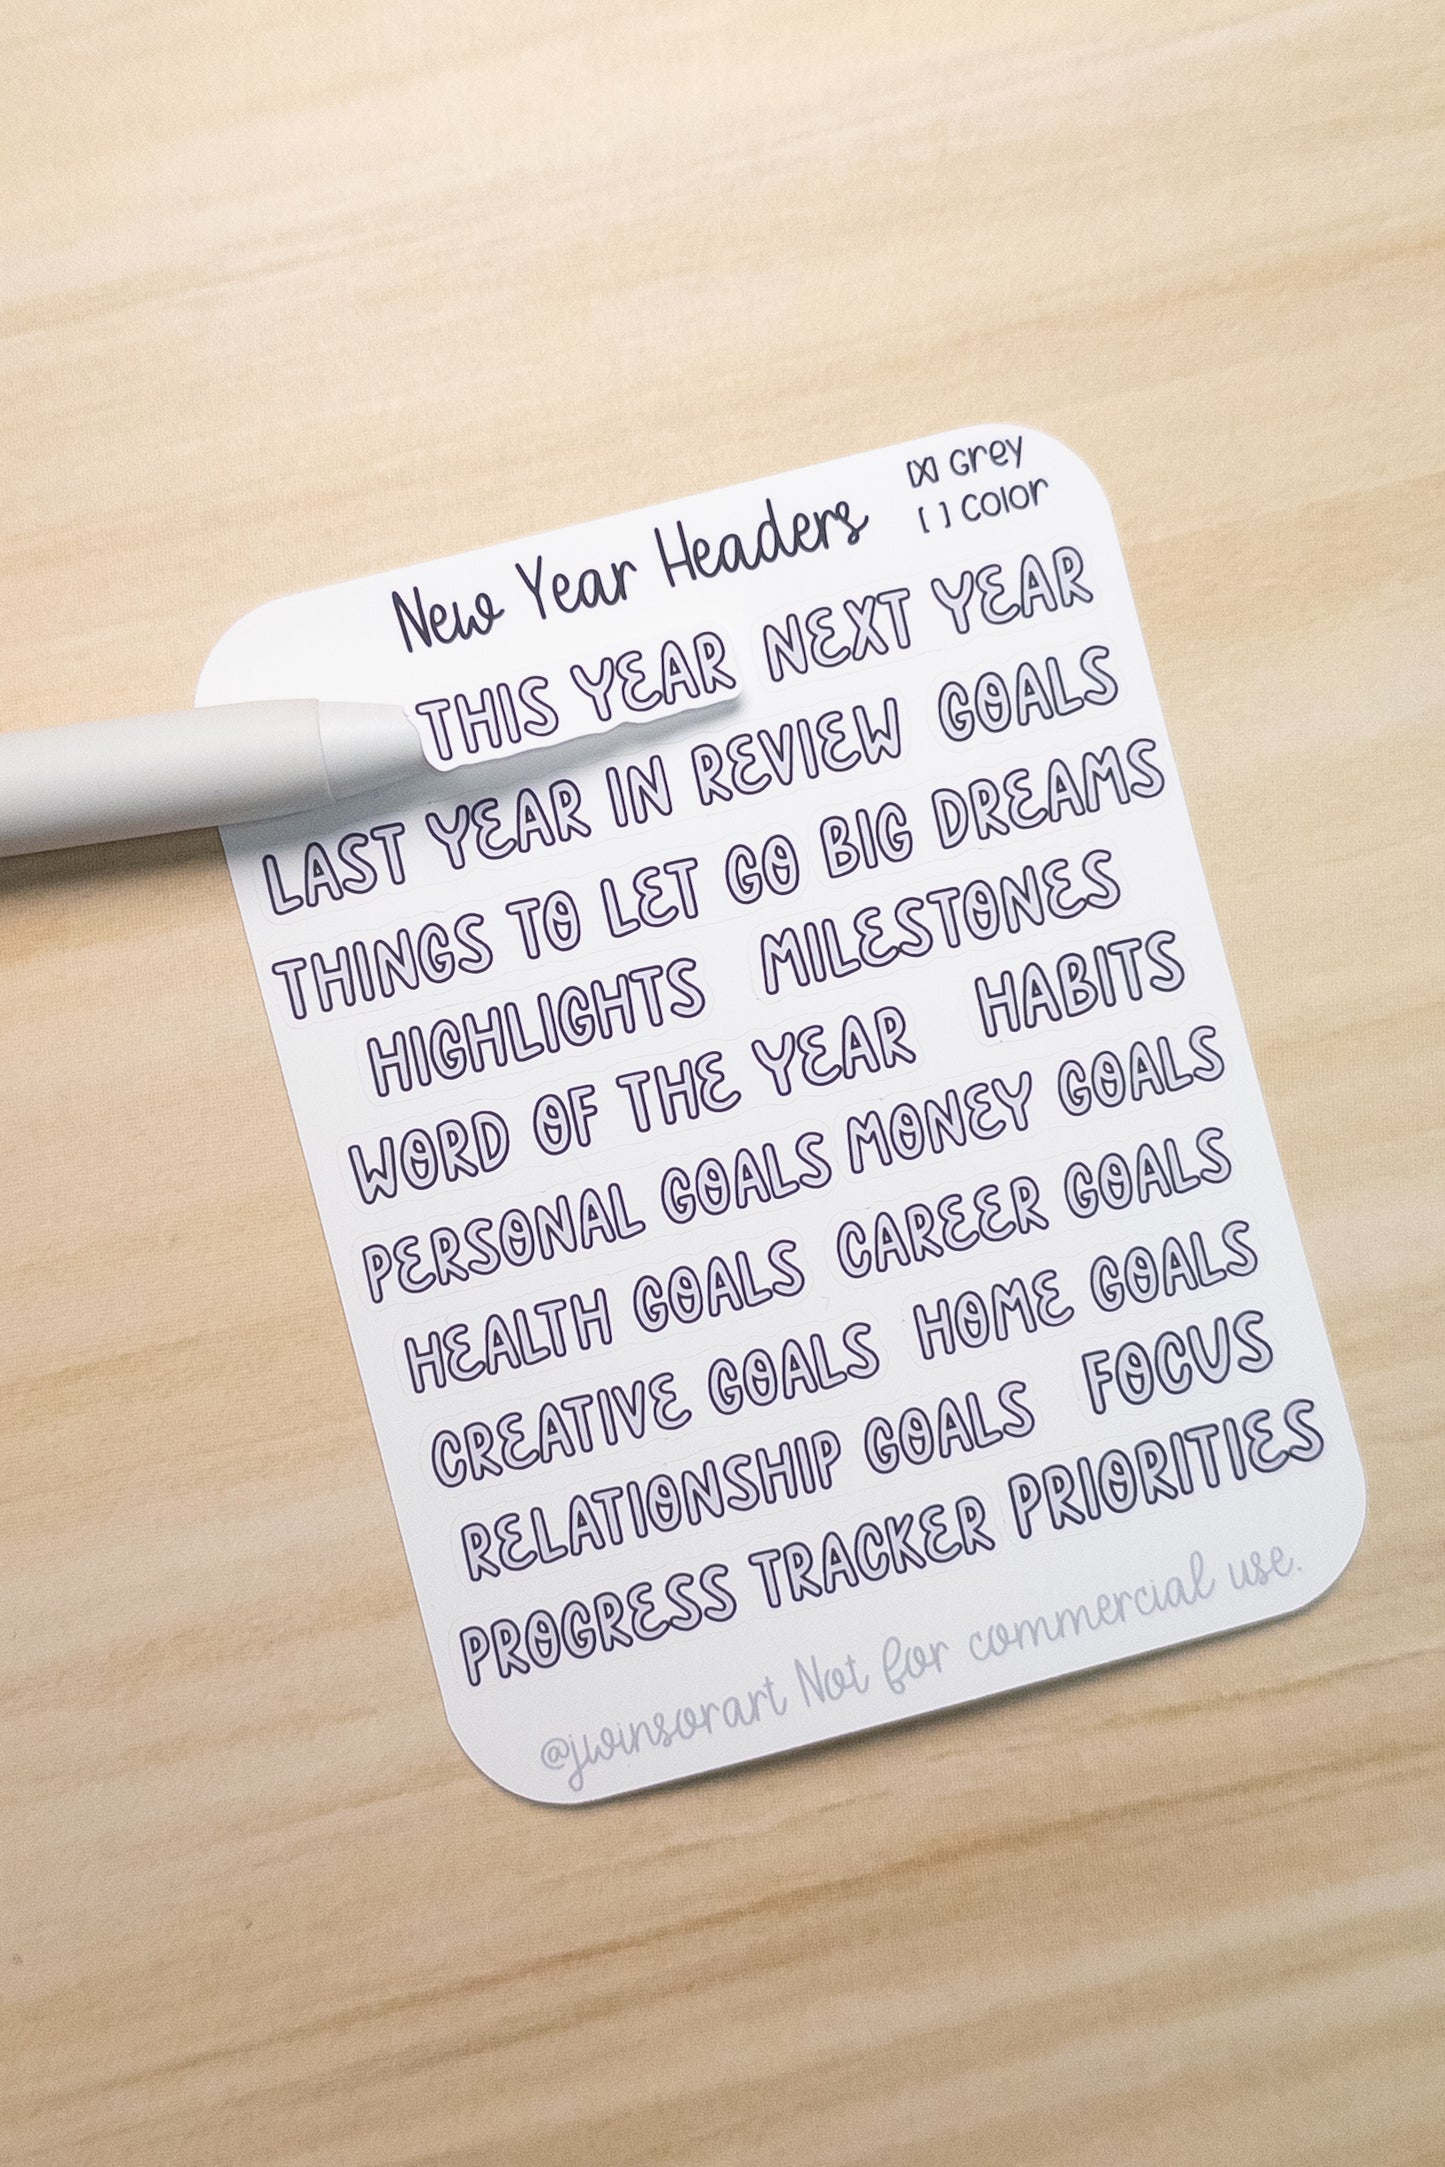 New Year Headers
[X] Grey
[ ] Color
THIS YEAR NEXT YEAR
LAST YEAR IN REVIEW GOALS
THINGS TO LET GO BIG DREAMS
HIGHLIGHTS MILESTONES
WORD OF THE YEAR HABITS
PERSONAL GOALS MONEY GOALS
HEALTH GOALS CAREER GOALS
CREATIVE GOALS HOME GOALS
RELATIONSHIP GOALS FOCUS
PROGRESS TRACKER PRIORITIES
@jwinsorart Not for commercial use.